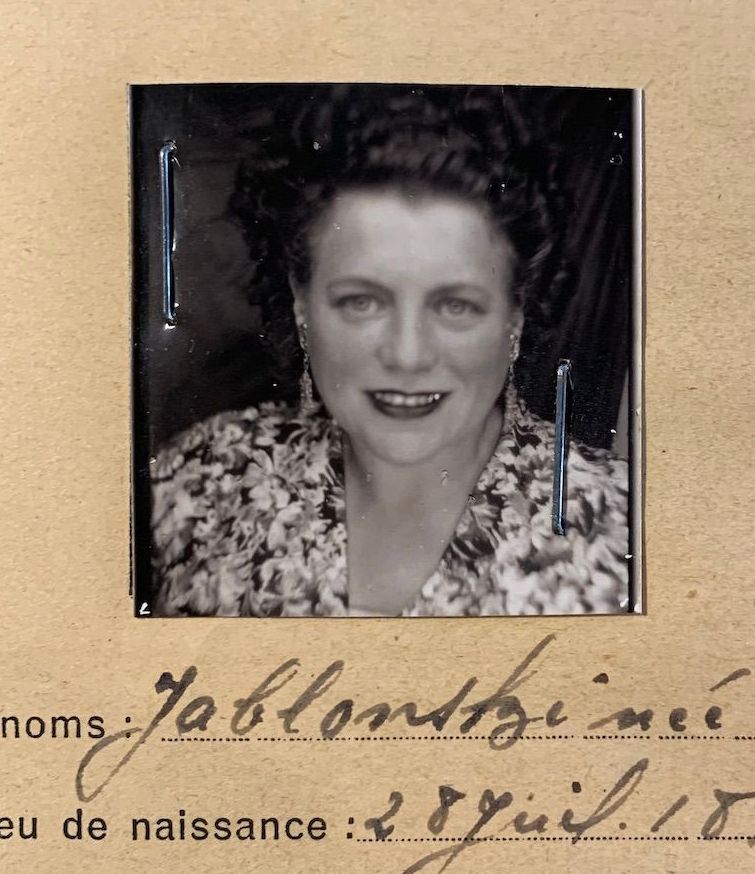 noms : Jablonski née
eu de naissance : 28 Juil. 18